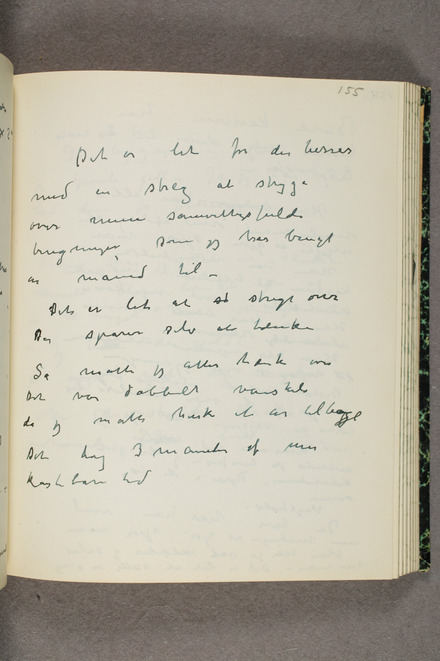 155
Det er let for den herrer
med en streg at stryge
over mine samvittighedsfulde
som jeg har brugt
en måned til –
Det er let at stryge over
De sparer selv at tænke
Så måtte jeg atter tænke over
Det var dobbelt vanskeligt
da jeg måtte tænke et år tilbage
Det tog 3 måneder af min
kostbare tid